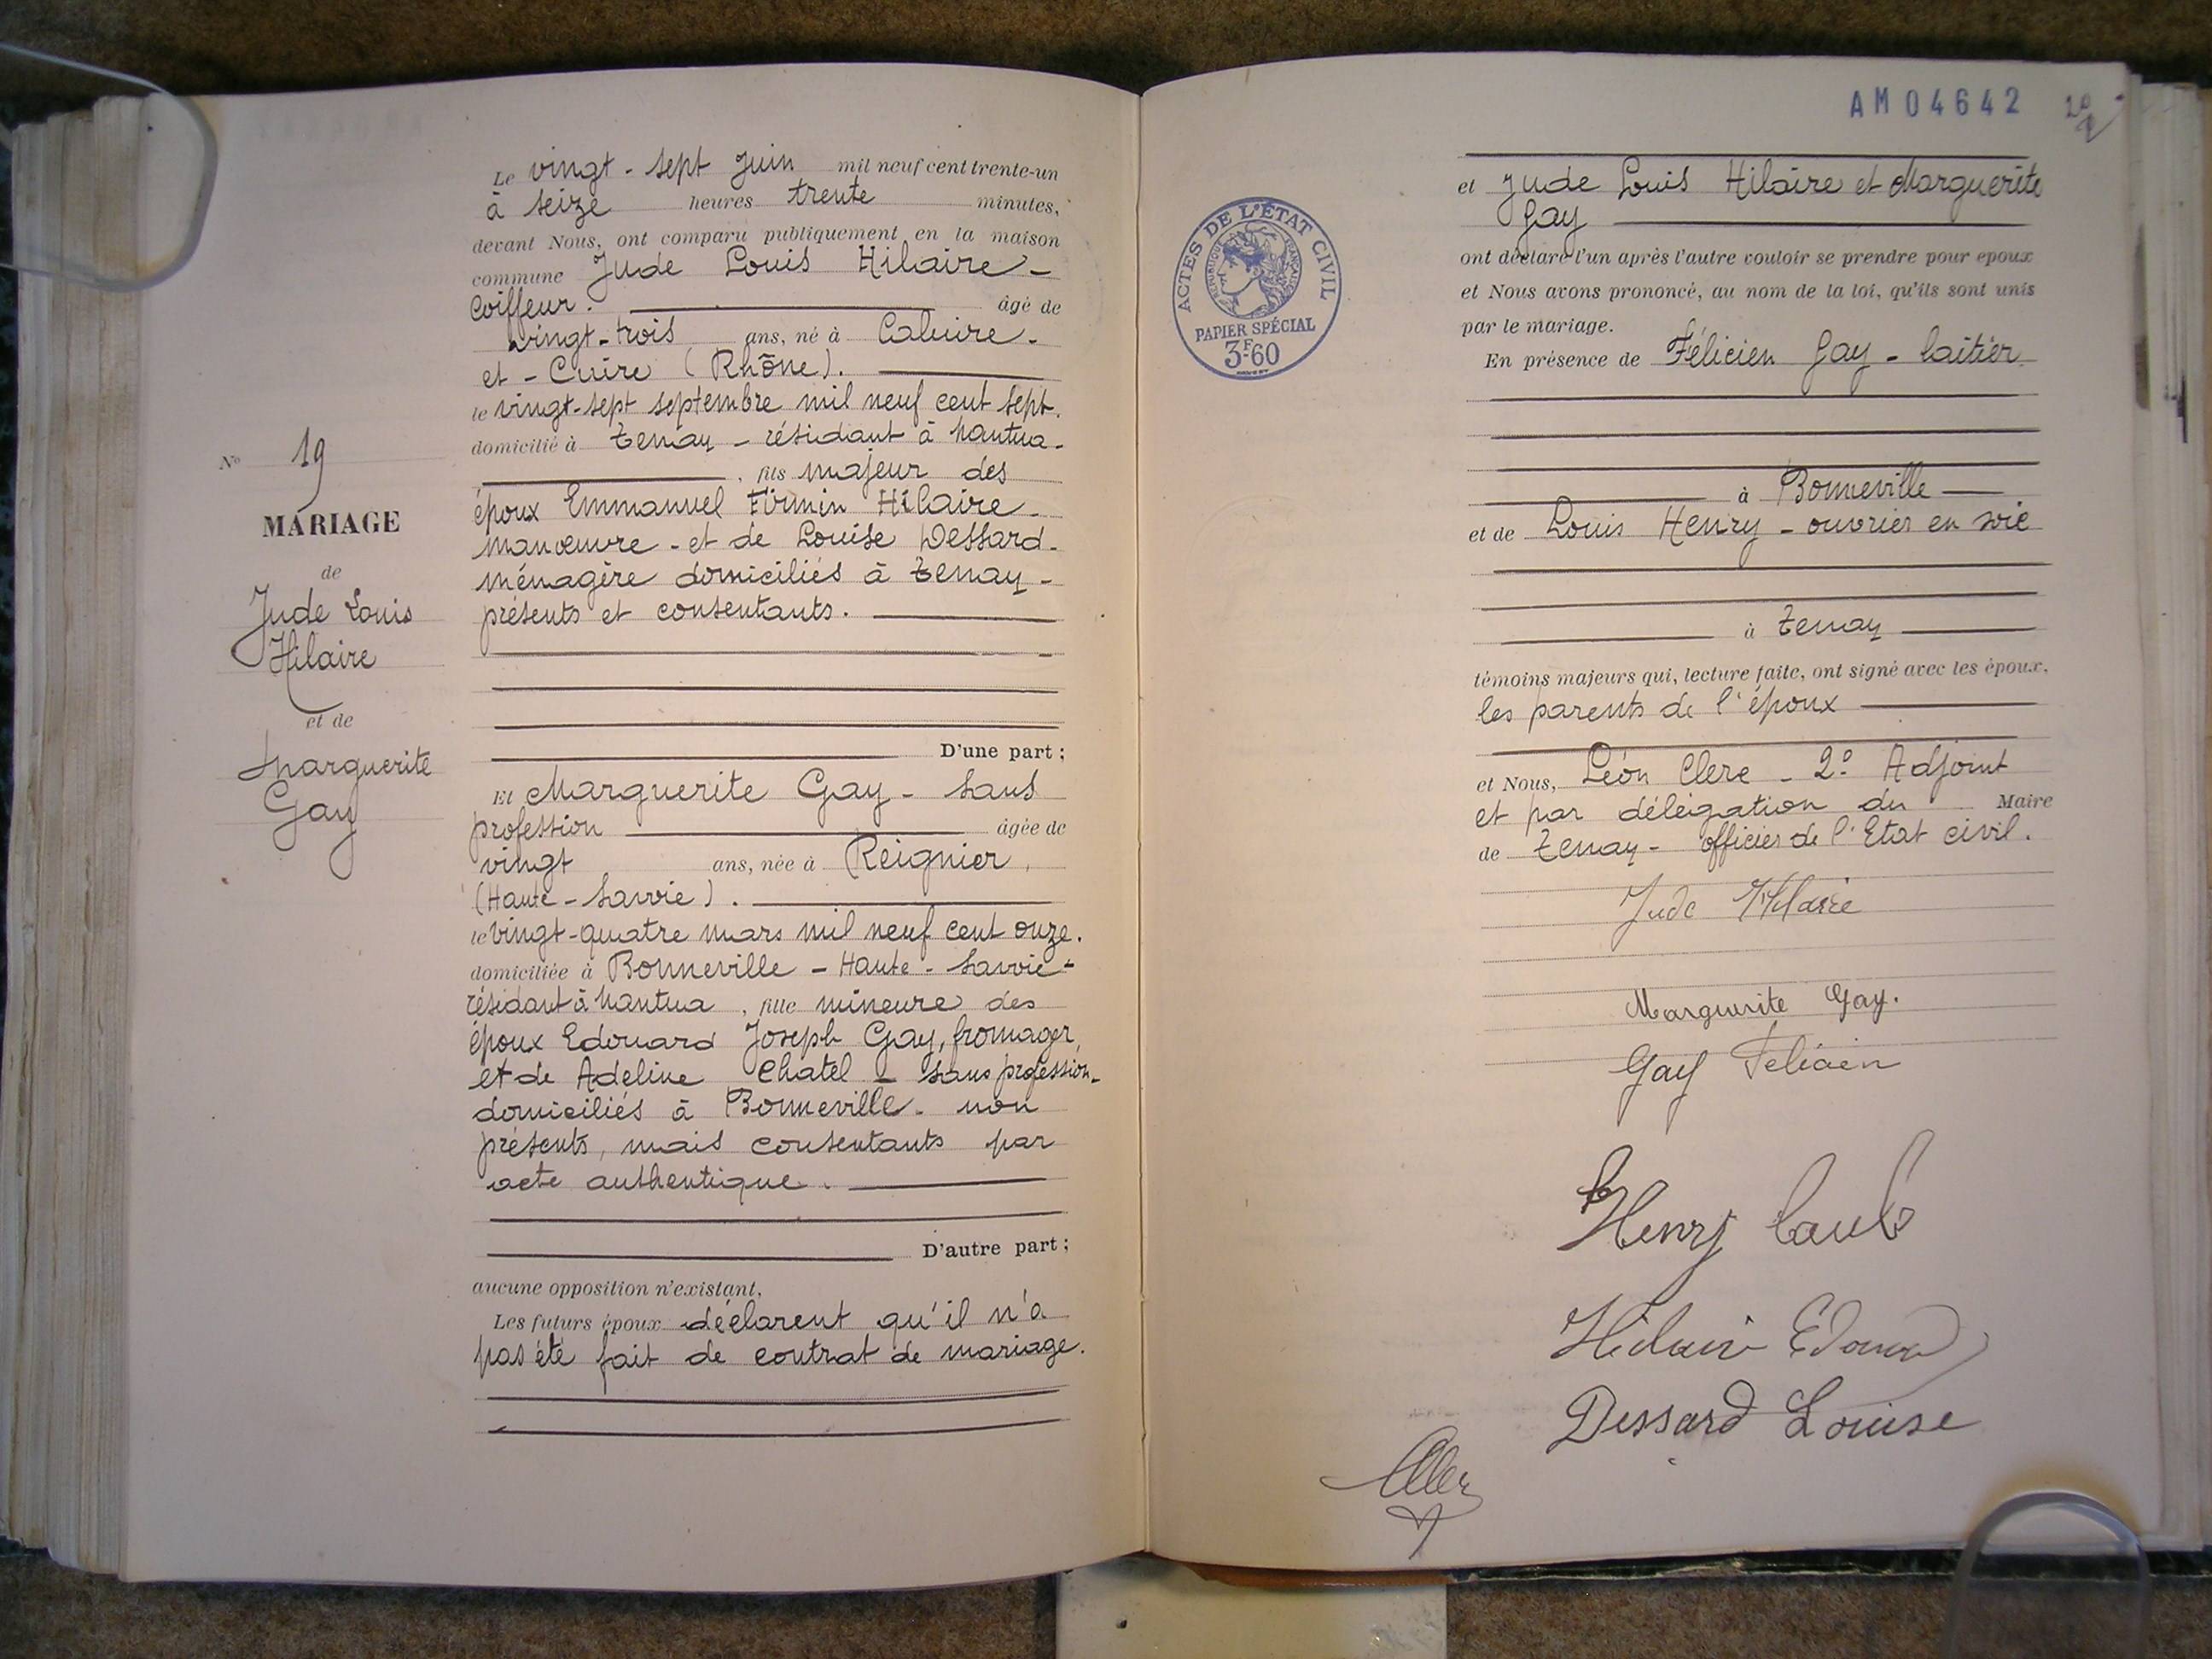 N° 19
MARIAGE
de
Jude Louis
Hilaire
et de
Marguerite
Gay
Le vingt-sept Juin mil neuf cent trente-un
à seize heures trente minutes,
devant Nous, ont comparu publiquement en la maison
commune Jude Louis Hilaire -
coiffeur. âgé de
vingt-trois ans, né à Caluire -
et - Cuire (Rhône).
le vingt-sept septembre mil neuf cent sept.
domicilié à Tenay - résidant à Nantua -
, fils majeur des
époux Emmanuel Firmin Hilaire -
manœuvre - et de Louise Dessard -
ménagère domiciliés à Tenay -
présents et consentants.
D'une part ;
Et Marguerite Gay - sans
profession âgée de
vingt ans, née à Reignier,
(Haute-Savoie).
le vingt-quatre mars mil neuf cent onze.
domiciliée à Bonneville - Haute-Savoie -
résidant à Nantua, fille mineure des
époux Edouard Joseph Gay, fromager,
et de Adeline Chatel - sans profession -
domiciliés à Bonneville - non
présents, mais consentants par
acte authentique.
D'autre part ;
aucune opposition n'existant,
Les futurs époux déclarent qu'il n'a
pas été fait de contrat de mariage.
AM04642
ACTES DE L'ÉTAT CIVIL
RÉPUBLIQUE FRANÇAISE
PAPIER SPÉCIAL
3F60
et Jude Louis Hilaire et Marguerite
Gay
ont déclaré l'un après l'autre vouloir se prendre pour époux
et Nous avons prononcé, au nom de la loi, qu'ils sont unis
par le mariage.
En présence de Félicien Gay - laitier
à Bonneville
et de Louis Henry - ouvrier en soie
à Tenay
témoins majeurs qui, lecture faite, ont signé avec les époux,
les parents de l'époux
et Nous, Léon Clerc - 2° Adjoint
et par délégation du Maire
de Tenay - officier de l'Etat civil.
Jude Hilaire
Marguerite Gay.
Gay Félicien
Henry Louis
Hilaire
Dessard Louise